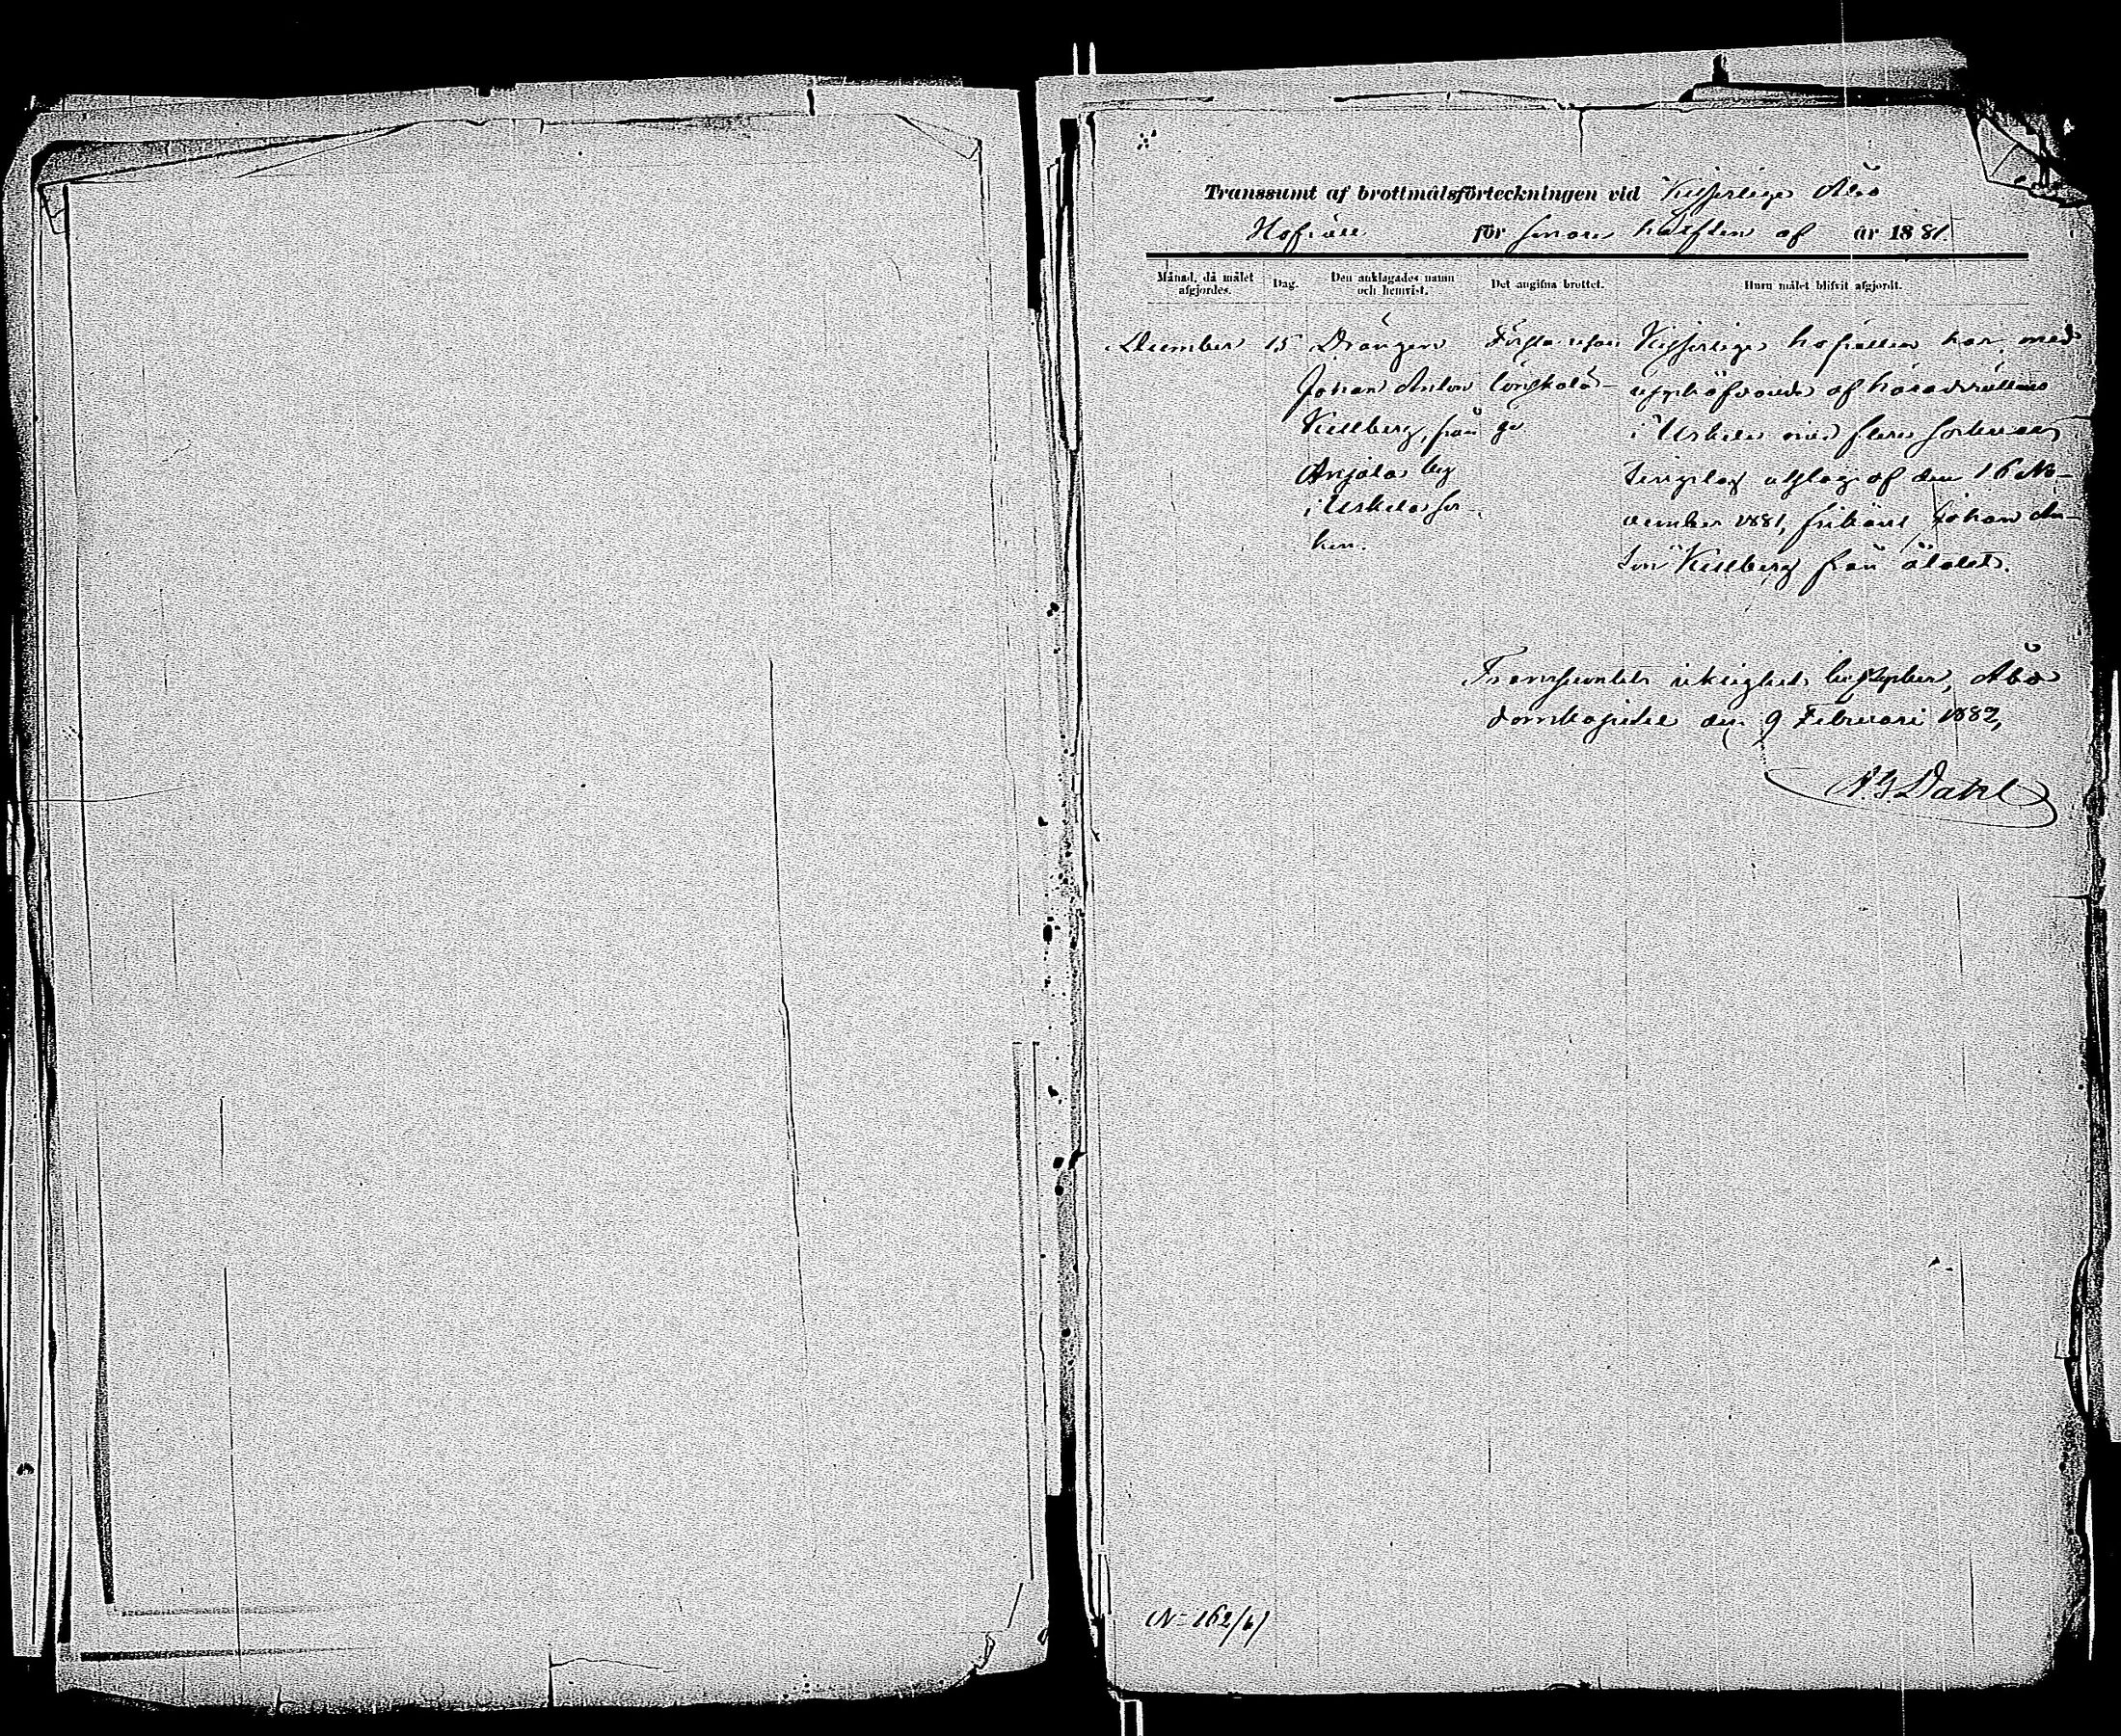 Transsumt af brottmålsförteckningen vid Kejserliga Åbo
Hofrätt för senare hälften af år 1881.
Månad, då målet afgjordes.
Dag.
Den anklagades namn och hemvist.
Det angifna brottet.
Huru målet blifvit afgjordt.
December 15
Drängen
Johan Anton
Kullberg, från
Anjala by
i Uskela soc
ken.
Första resan
lönskalä-
ge
Kejserliga hofrätten har, med
upphäfvande af häradsrättens
i Uskela med flere socknars
tingslag utslag af den 16 No-
vember 1881, frikänt Johan An-
ton Kullberg från åtalet.
Transsumtets riktighet bestyrker, Åbo
domkapitel den 9 Februari 1882,
Dahl
N= 162/61